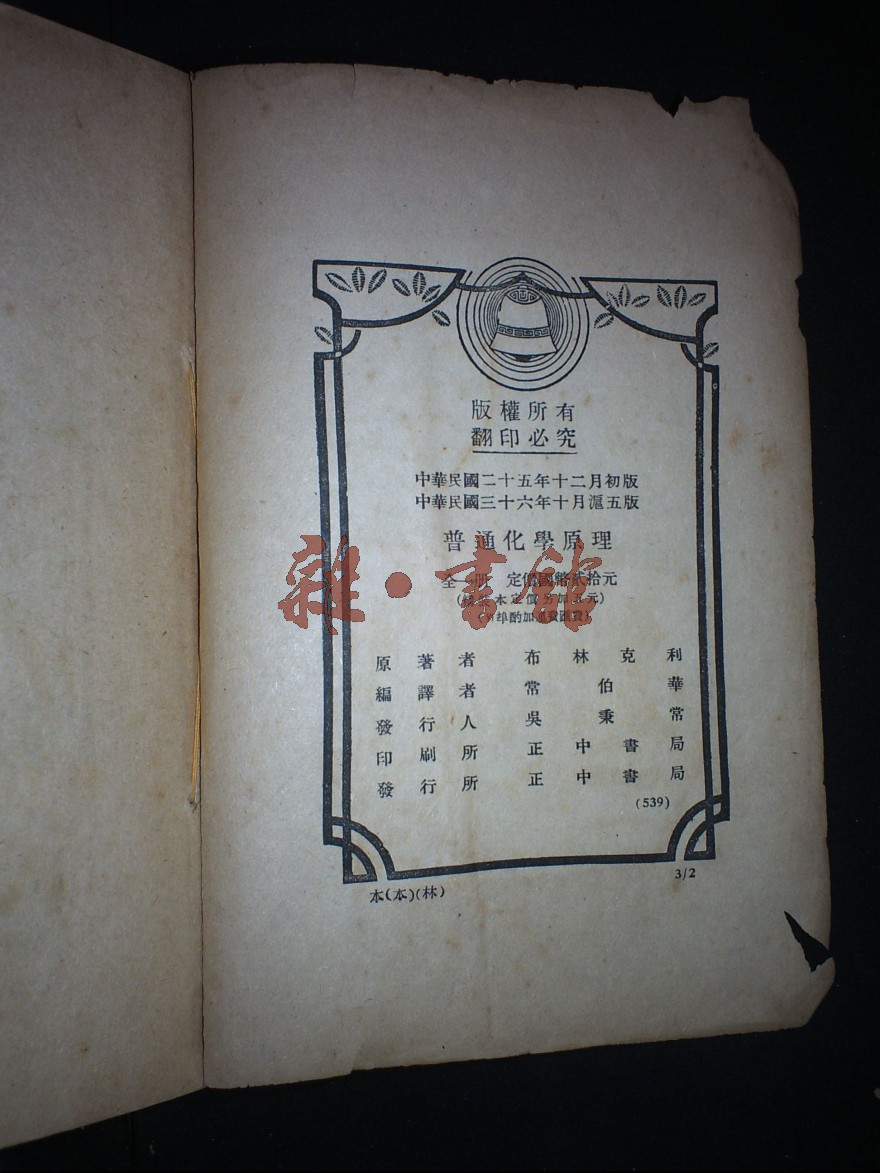 版權所有
翻印必究
中華民國二十五年十二月初版
中華民國三十六年十月滬五版
普通化學原理
全一册 定價國幣貳拾元
本定價另加 元)
酌加運費匯費)
原著者 布林克利
編譯者 常伯華
發行人 吳秉常
印刷所 正中書局
發行所 正中書局
(539)
本(本)(林)
3/2
雜·書館